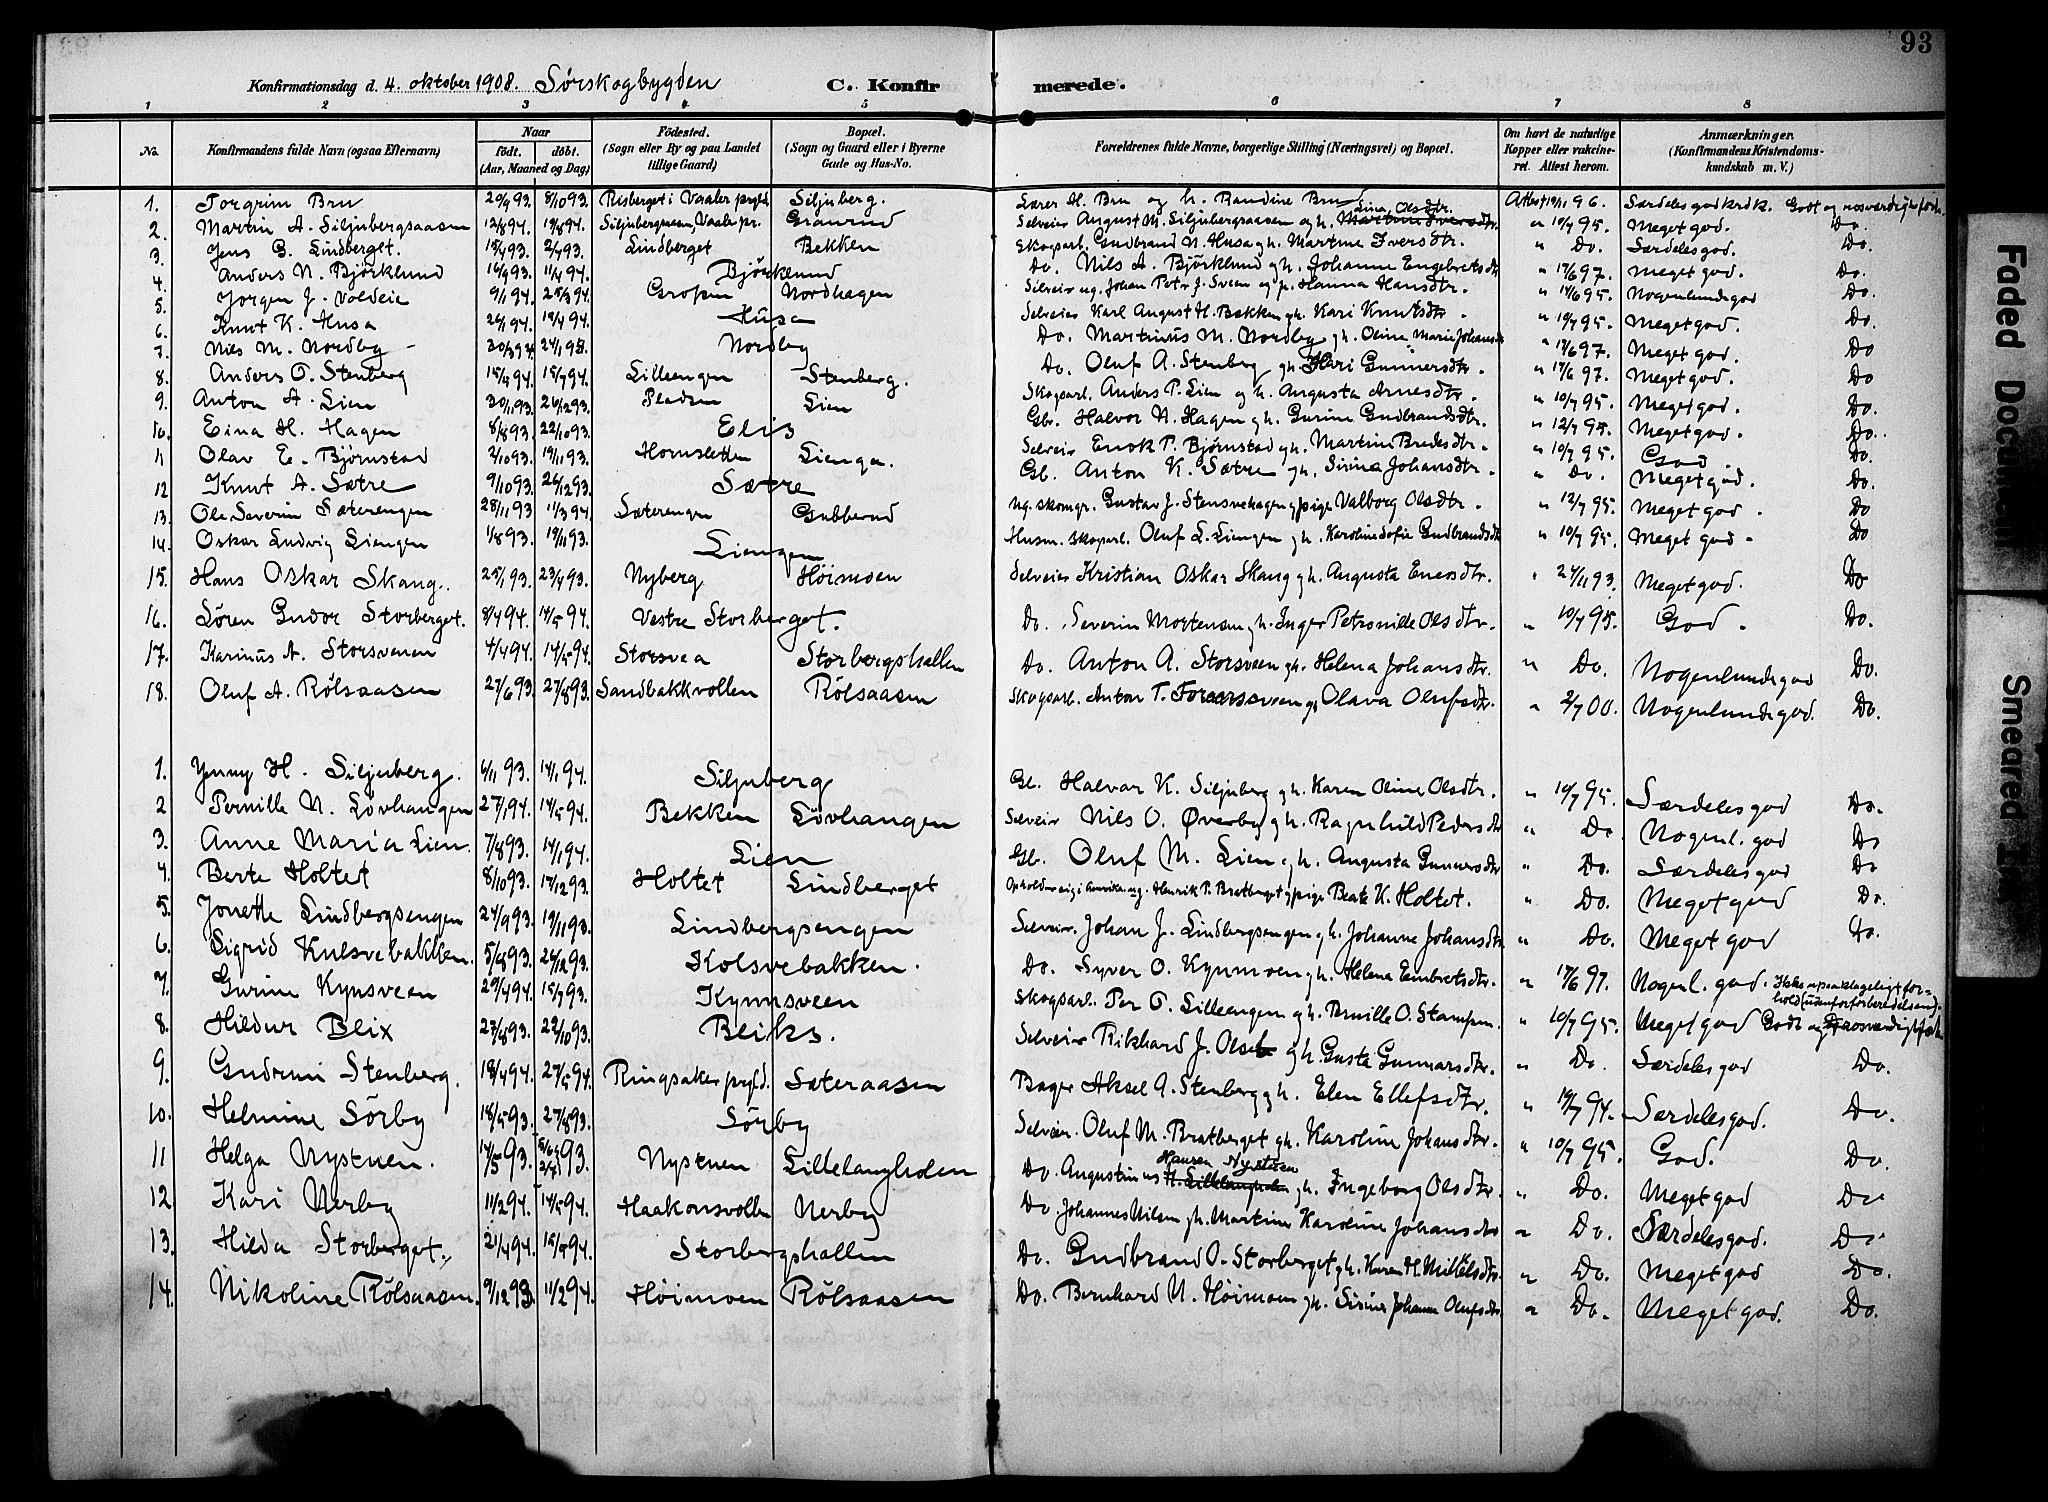 93
Konfirmationsdag d. 4. oktober 1908. Sørskogbygden C. Konfirmerede.
1 2 3 4 5 6 7 8
No. Konfirmandens fulde Navn (ogsaa Efternavn) Naar født. døbt. (Aar, Maaned og Dag) Fødested. (Sogn eller By og paa Landet tillige Gaard) Bopæl. (Sogn og Gaard eller i Byerne Gade og Hus-No. Forældrenes fulde Navne, borgerlige Stilling (Næringsvei) og Bopæl. Om havt de naturlige Kopper eller vakcineret. Attest herom. Anmærkninger. (Konfirmandens Kristendomskundskab m. V.)
1. Torgrim Bru 29/9 93. 8/10 93. Risberget i Vaaler prgld. Siljuberg. Lærer H. Bru og h. Randine Bru Attest 19/11 96. Særdeles god krdk. Godt og
2. Martin A. Siljubergsaasen 12/8 94. 19/8 94. Siljubergsaasen, Vaaler pr. Granrud Selveier August M. Siljubergsaasen og h. Lina Olsdtr. " 10/7 95. Meget god. Do.
3. Jens G. Lindberget. 2/4 93. Lindberget Bekken Skogsarb. Gudbrand N. Husa g h. Martine Iversdtr. " Do. Særdeles god. Do.
4. Anders N. Bjørklund 11/4 94. Bjørklund Do. Nils A. Bjørklund g h. Johanne Engebretsdtr " 17/6 97. Meget god. Do.
5. Jørgen J. Voldeie 9/1 94. 25/3 94. Gropen Nordhagen Selveier ug. Johan Petr J. Sveen og p. Hanna Hansdtr. " 14/6 95. Nogenlunde god Do.
6. Knut K. Husa 26/1 94. 19/4 94. Husa Selveier Karl August H. Bekken g h. Kari Knutsdtr. " 10/7 95. Meget god. Do.
7. Nils M. Nordby Nordby Do. Martinus M. Nordby g h. Oline Marie Johansdtr " 17/6 97. Meget god. Do
8. Anders O. Stenberg 15/7 94. Lilleengen Stenberg. Do. Oluf A. Stenberg g h. Kari Gunnersdtr. " 17/6 97. Meget god. Do
9. Anton A. Lien 30/11 93. 26/12 93. Pladsen Lien Skogsarb. Anders P. Lien og h. Augusta Arnesdtr. " 10/7 95. Meget god. Do.
10. Eina H. Hagen 8/8 93. 22/10 93. Elis Gb. Halvor N. Hagen g h. Gurine Gudbrandsdtr. " 12/7 95. Meget god. Do.
11 Olav E. Bjørnstad 2/10 93. 19/11 93. Hornsletten Lienga. Selveier Enok P. Bjørnstad g h. Martine Bredesdtr. " 10/7 95. God Do.
12 Knut A. Sætre 9/10 93. 26/12 93. Sætre Gb. Anton K. Sætre g h. Sirina Johansdtr. " Do. Meget god. Do.
13. Ole Severin Sæterengen 28/11 93 11/3 94. Sæterengen Gubberud Ug. skomgr. Gustav J. Stensvehagen g pige Valborg Olsdtr. " 12/7 95. Meget god. Do
14. Oskar Ludvig Liengen 1/8 93. 19/11 93. Liengen Husm. skogarb. Oluf L. Liengen g h. Karoline Sofie Gudbrandsdtr " 10/7 95. Meget god. Do
15. Hans Oskar Skang. 25/1 93. 23/4 93. Nyberg Høimoen Selveier Kristian Oskar Skang g h. Augusta Enersdtr. " 24/11 93. Meget god. Do
16. Søren Gudor Storberget. 8/4 94. 14/5 94. Vestre Storberget. Do. Severin Mortensen g h. Inger Petronille Olsdtr. " 10/7 95. God. Do.
17. Karinus A. Storsveen 4/4 94. 14/5 94. Storsvea Storbergshallen Do. Anton A. Storsveen g h. Helena Johansdtr. " Do. Nogenlunde god Do.
18. Oluf A. Rölsaasen 27/6 93. 27/8 93. Sandbakkvollen Rölsaasen Skogsarb. Anton T. g Olava Olufsdtr. " 2/7 00. Nogenlunde god. Do.
1. Jenny H. Siljuberg. 6/11 93. 14/1 94. Siljuberg Gb. Halvar K. Siljuberg g h. Karen Oline Olsdtr. " 10/7 95. Særdeles god Do.
2 Pernille N. Løvhaugen 27/1 94. 14/5 94. Bekken Løvhaugen Selveier Nils O. Øverby g h. Ragnhild Pedersdtr " Do. Nogenl. god Do.
3. Anne Maria Lien. 7/8 93. 14/1 94. Lien Gb. Oluf M. Lien g h. Augusta Gunnersdtr " Do. Særdeles god Do
4. Berte Holtet 8/10 93. 17/12 93. Holtet Lindberget Opholder sig i Amrika ug. Henrik P. Bratberget g pige Beate K. Holtet. " Do. Meget god Do.
5. Jonette Lindbergsengen 24/9 93. 19/11 93. Lindbergsengen Selveier. Johan J. Lindbergsengen g h. Johanne Johansdtr " Do. Meget god Do.
6. Sigrid Kulsvebakken. 26/12 93. Kolsvebakken. Do. Syver O. Kynmoen g h. Helena Embretsdtr. " 17/6 97. Nogenl. god.
7. Gurine Kynsveen 15/7 93. Kynnsveen Skogsarb. Per P. Lilleengen g h. Pernille O. Stampen. " 10/7 95. Meget god Godt og
8. Hildur Blix 23/8 93. 22/10 93. Bliks. Selveier Rikhard J. Olsen g h. Gusta Gunnarsdtr. " Do. Særdeles god Do.
9. Gudrun Stenberg. 18/4 94. 27/5 94. Ringsaker prgld. Sæteraasen Bager Aksel A. Stenberg g h. Elen Ellefsdtr. " 19/7 94. Særdeles god. Do.
10. Helmine Sörby 18/5 93. 27/8 93. Sörby Selveier. Oluf M. Bratberget g h. Karoline Johansdtr. " 10/7 95. God. Do.
11 Helga Nystuen. 14/5 93. Nystuen Lillelangholen Do. Augustinus Hansen Nystuen g h. Ingeborg Olsdtr. " Do. Meget god Do.
12 Kari Nerby 11/2 94. 14/5 94. Haakonsvollen Nerby Do. Johannes Nilsen g h. Martine Karoline Johansdtr " Do. Særdeles god. Do.
13. Hilda Storberget. 21/4 94. Storbergshallen Do. Gudbrand O. Storberget g h. Karen H. Mikkelsdtr. " Do. Meget god Do.
14. Nikoline Rölsaasen. 9/12 93. 11/2 94. Høimoen Rölsaasen Do. Bernhard N. Høimoen g h. Sirine Johanne Olufsdtr. " Do. Meget god. Do.
Faded Document
Smeared Ink